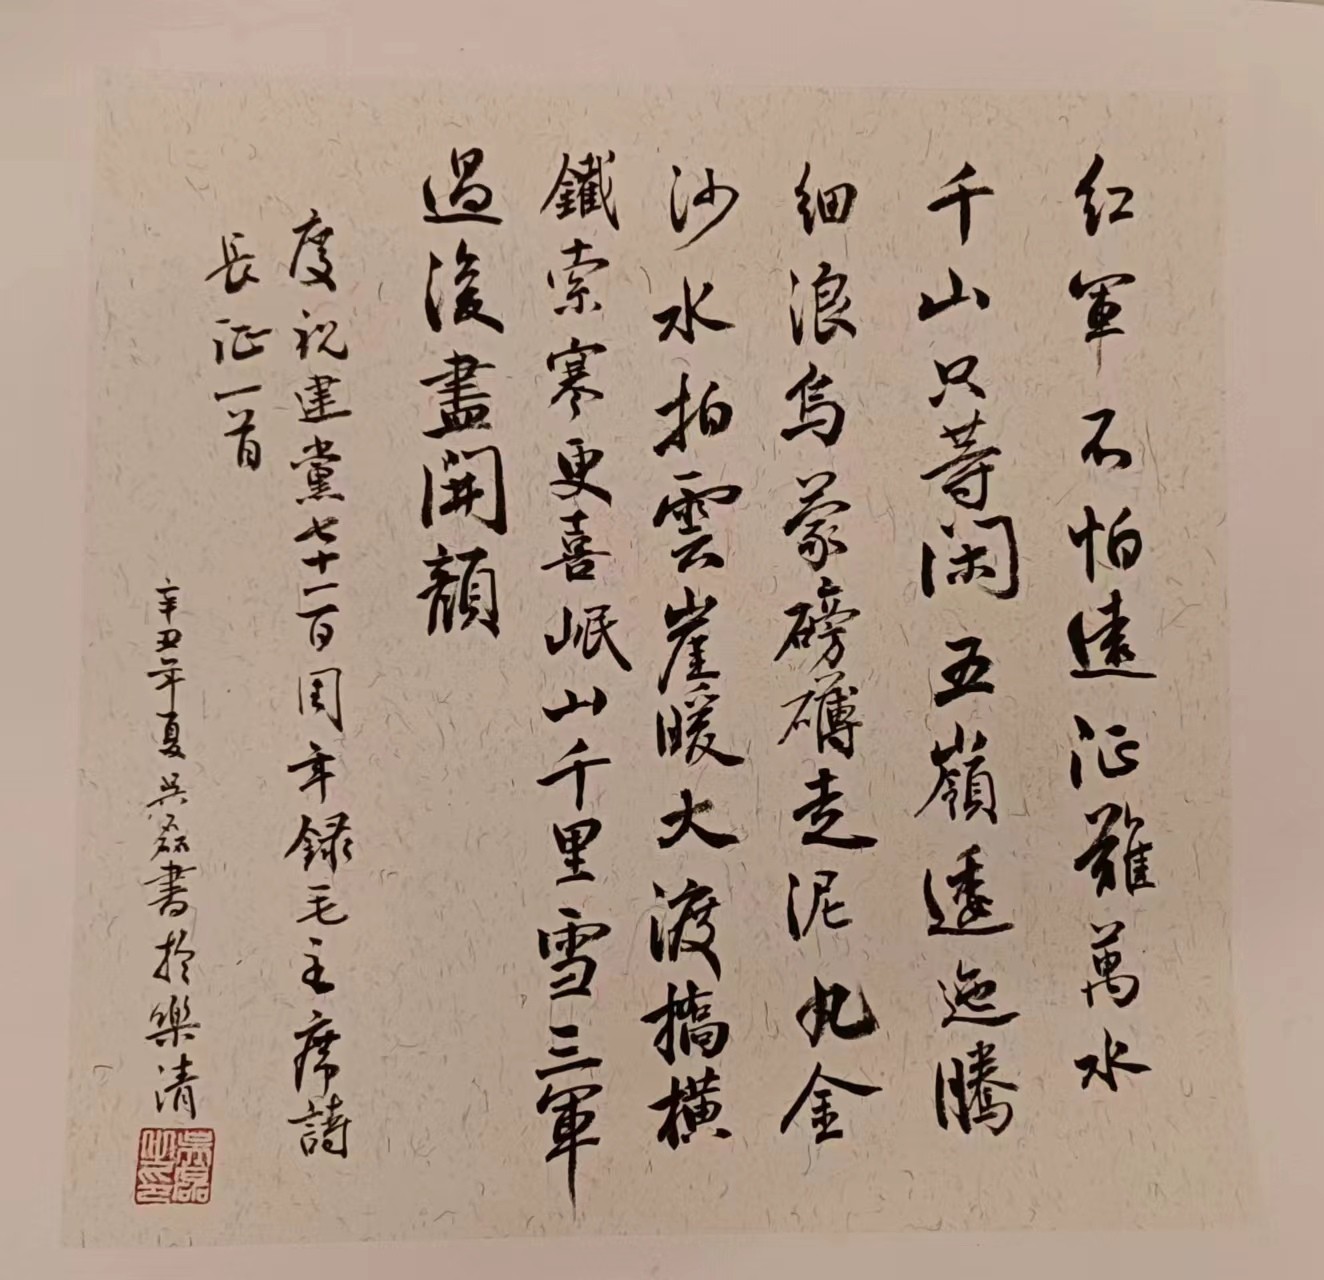 红軍不怕遠征難萬水
千山只等闲五嶺逶迤騰
细浪烏蒙磅礴走泥丸金
沙水拍雲崖暖大渡橋橫
鐵索寒更喜岷山千里雪三軍
過後盡開顏
慶祝建黨七十一百周年錄毛主席詩
長征一首
辛丑年夏吳磊書於樂清
吳磊之印